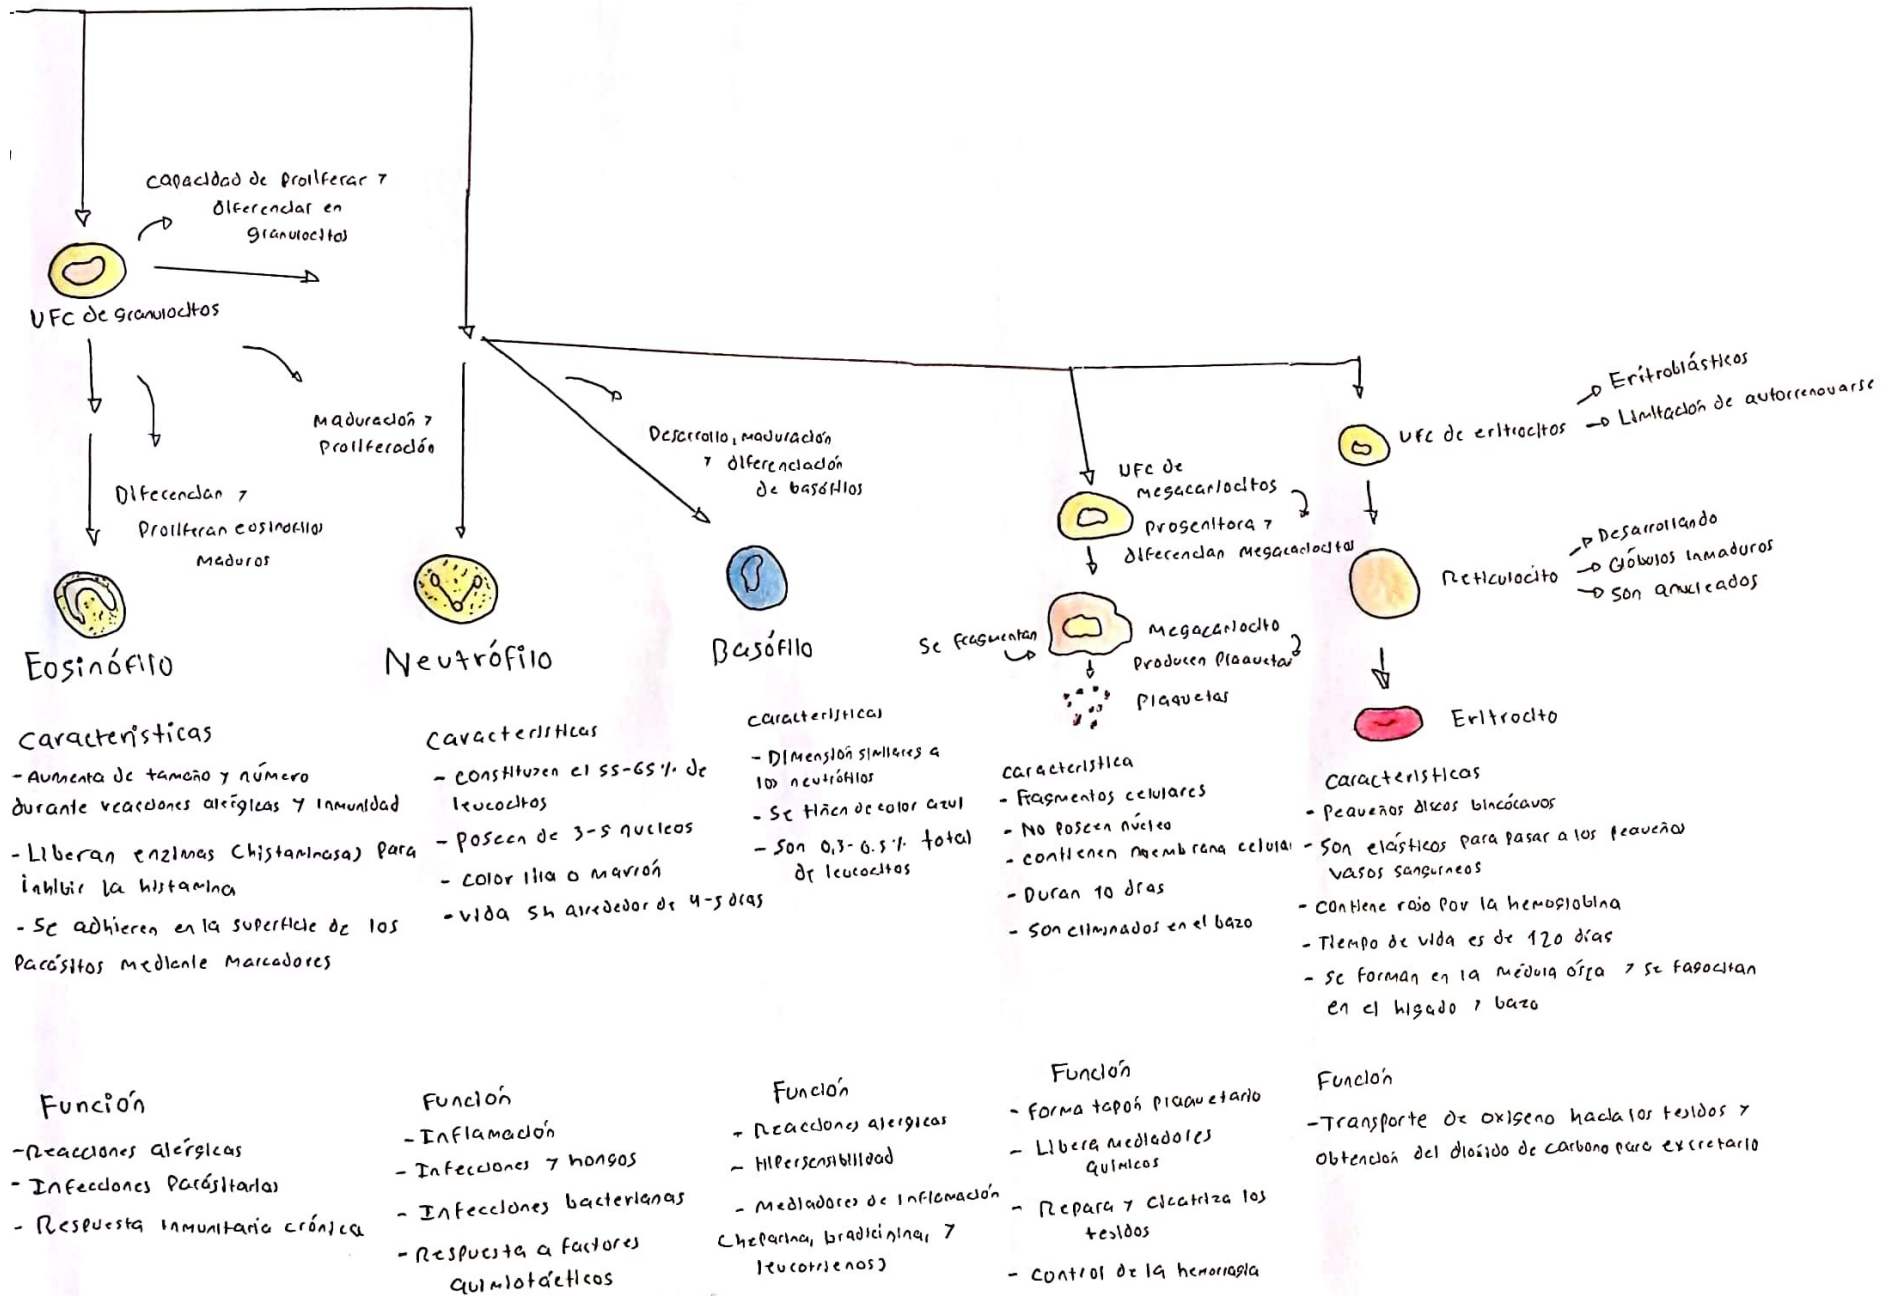 Capacidad de Proliferar y
diferenciar en
granulocitos
UFC de granulocitos
Maduración y
Proliferación
Diferencian y
Proliferan eosinofilos
maduros
Desarrollo, maduración
y diferenciación
de basófilos
UFC de
megacariocitos
Progenitora y
diferencian megacariocitos
Se fragmentan
Megacariocito
Producen Plaquetas
Plaquetas
UFC de eritrocitos
Eritroblásticos
Limitación de autorrenovarse
Reticulocito
Desarrollando
Glóbulos inmaduros
Son anucleados
Eritrocito
Eosinófilo
Características
- Aumenta de tamaño y número
durante reacciones alérgicas y inmunidad
- Liberan enzimas (histaminasa) para
inhibir la histamina
- Se adhieren en la superficie de los
Parásitos mediante marcadores
Función
- Reacciones alérgicas
- Infecciones Parásitarias
- Respuesta inmunitaria crónica
Neutrófilo
Características
- constituyen el 55-65% de
leucocitos
- Poseen de 3-5 nucleos
- Color lila o marrón
- vida 5h alrededor de 4-5 días
Función
- Inflamación
- Infecciones y hongos
- Infecciones bacterianas
- Respuesta a factores
quimiotácticos
Basófilo
Características
- Dimensión similares a
los neutrófilos
- Se tiñen de color azul
- Son 0,3-0.5% total
de leucocitos
Función
- Reacciones alergicas
- Hipersensibilidad
- Mediadores de inflamación
(heparina, bradicinina, y
leucotrienos)
Característica
- Fragmentos celulares
- No Poseen núcleo
- contienen membrana celular
- Duran 10 días
- Son eliminados en el bazo
Función
- Forma tapón plaquetario
- Libera mediadores
químicos
- Repara y cicatriza los
tejidos
- Control de la hemorragia
Características
- Pequeños discos bincócavos
- Son elásticos para pasar a los pequeños
vasos sanguíneos
- Contiene rojo Por la hemoglobina
- Tiempo de vida es de 120 días
- Se forman en la médula ósea y se fagocitan
en el higado y bazo
Función
- Transporte de oxigeno hacia los tejidos y
obtención del dioxido de carbono para excretarlo